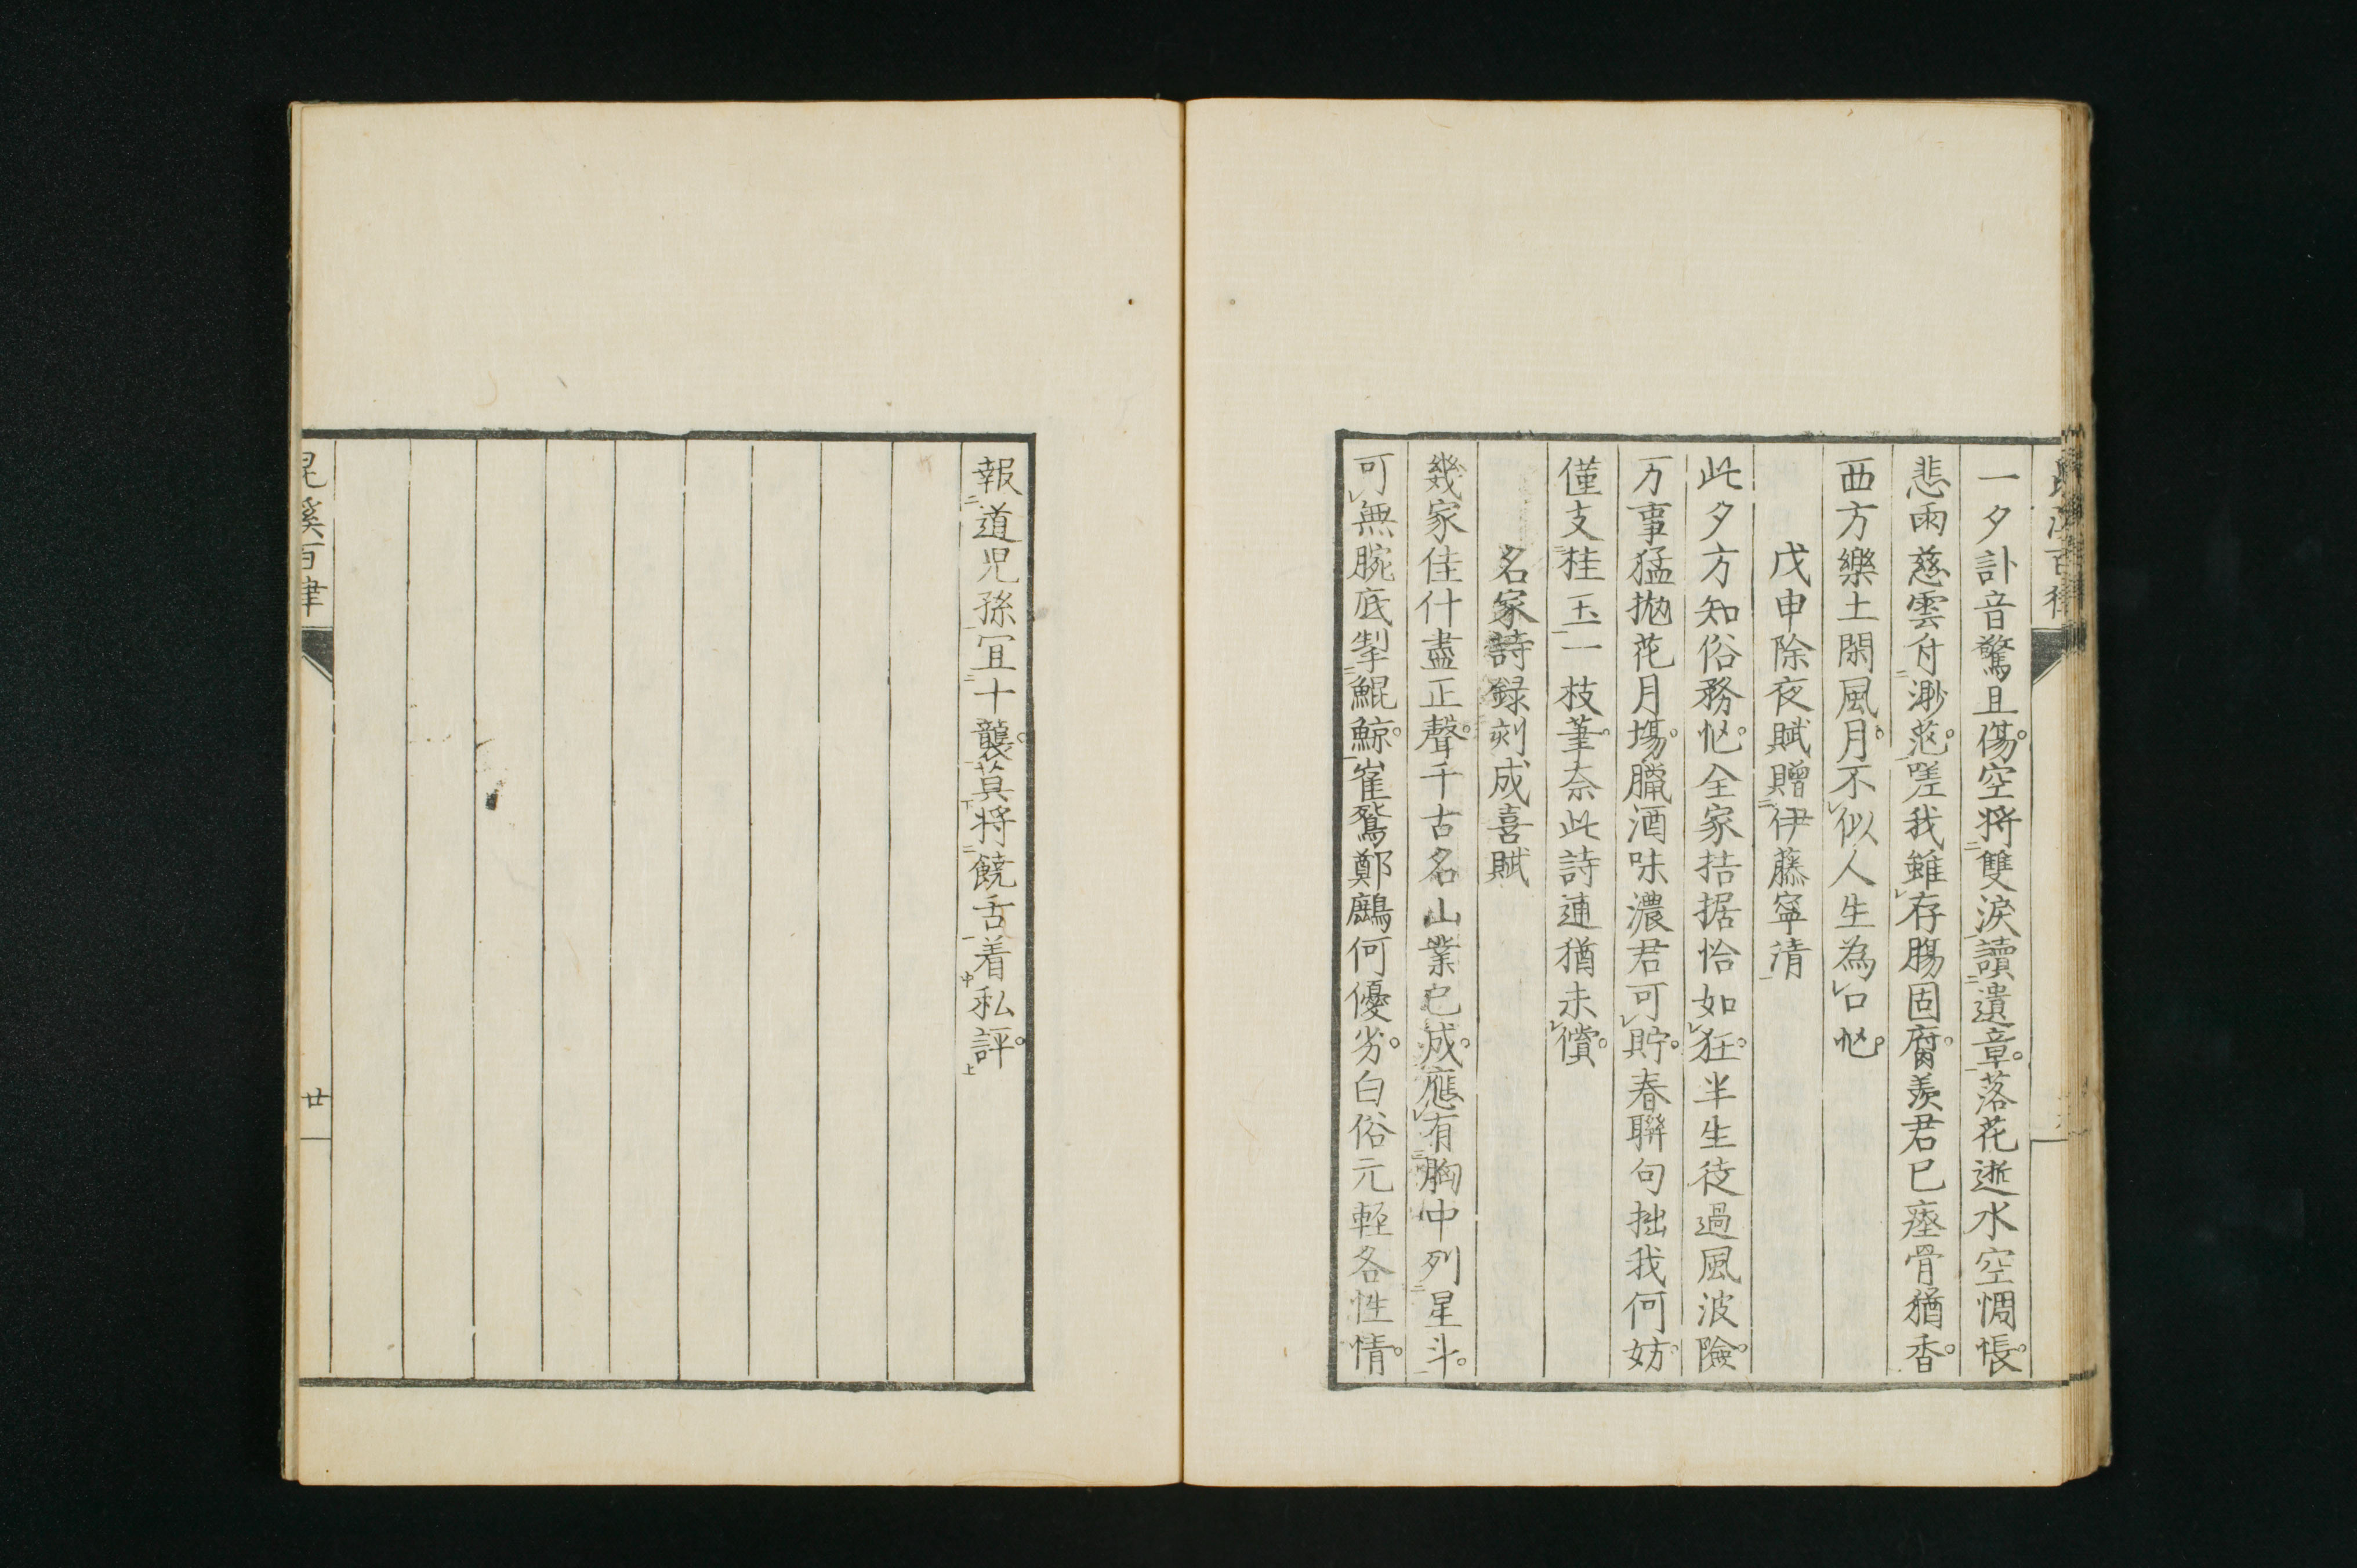 一夕訃音驚且傷空将雙淚讀遺章落花逝水空惆悵
悲雨慈雲付渺茫嗟我雖存腸固腐羨君已瘞骨猶香
西方樂土閑風月不似人生為口忙
戊申除夜賦贈伊藤寧清
此夕方知俗務忙全家拮据恰如狂半生徒過風波險
万事猛拋花月場臘酒味濃君可貯春聯句拙我何妨
僅支桂玉一枝筆奈此詩逋猶未償
名家詩録刻成喜賦
幾家佳什盡正聲千古名山業已成應有胸中列星斗
可無腕底掣鯤鯨崔鴛鄭鷓何優劣白俗元軽各性情
報道児孫宜十襲莫将饒舌着私評
溪百律
廿